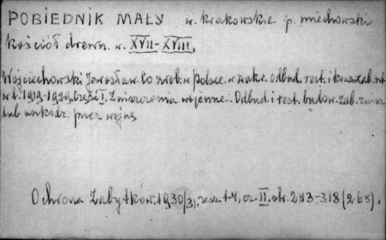 POBIEDNIK MAŁY w. krakowskie p. miechowski
kościół drewn. w. XVII-XVIII.
Wojciechowski Jarosław. Co zrob. w Polsce w zakr. odbud. rest. i konser. zab.
w l. 1919-1929. Część I. Zniszczenia wojenne. Odbud. i rest. budow. zab. zniszcz.
lub uszkodz. przez wojnę
Ochrona Zabytków. 1930/31, zesz. 1-4, cz. II. str. 283-318 (265).